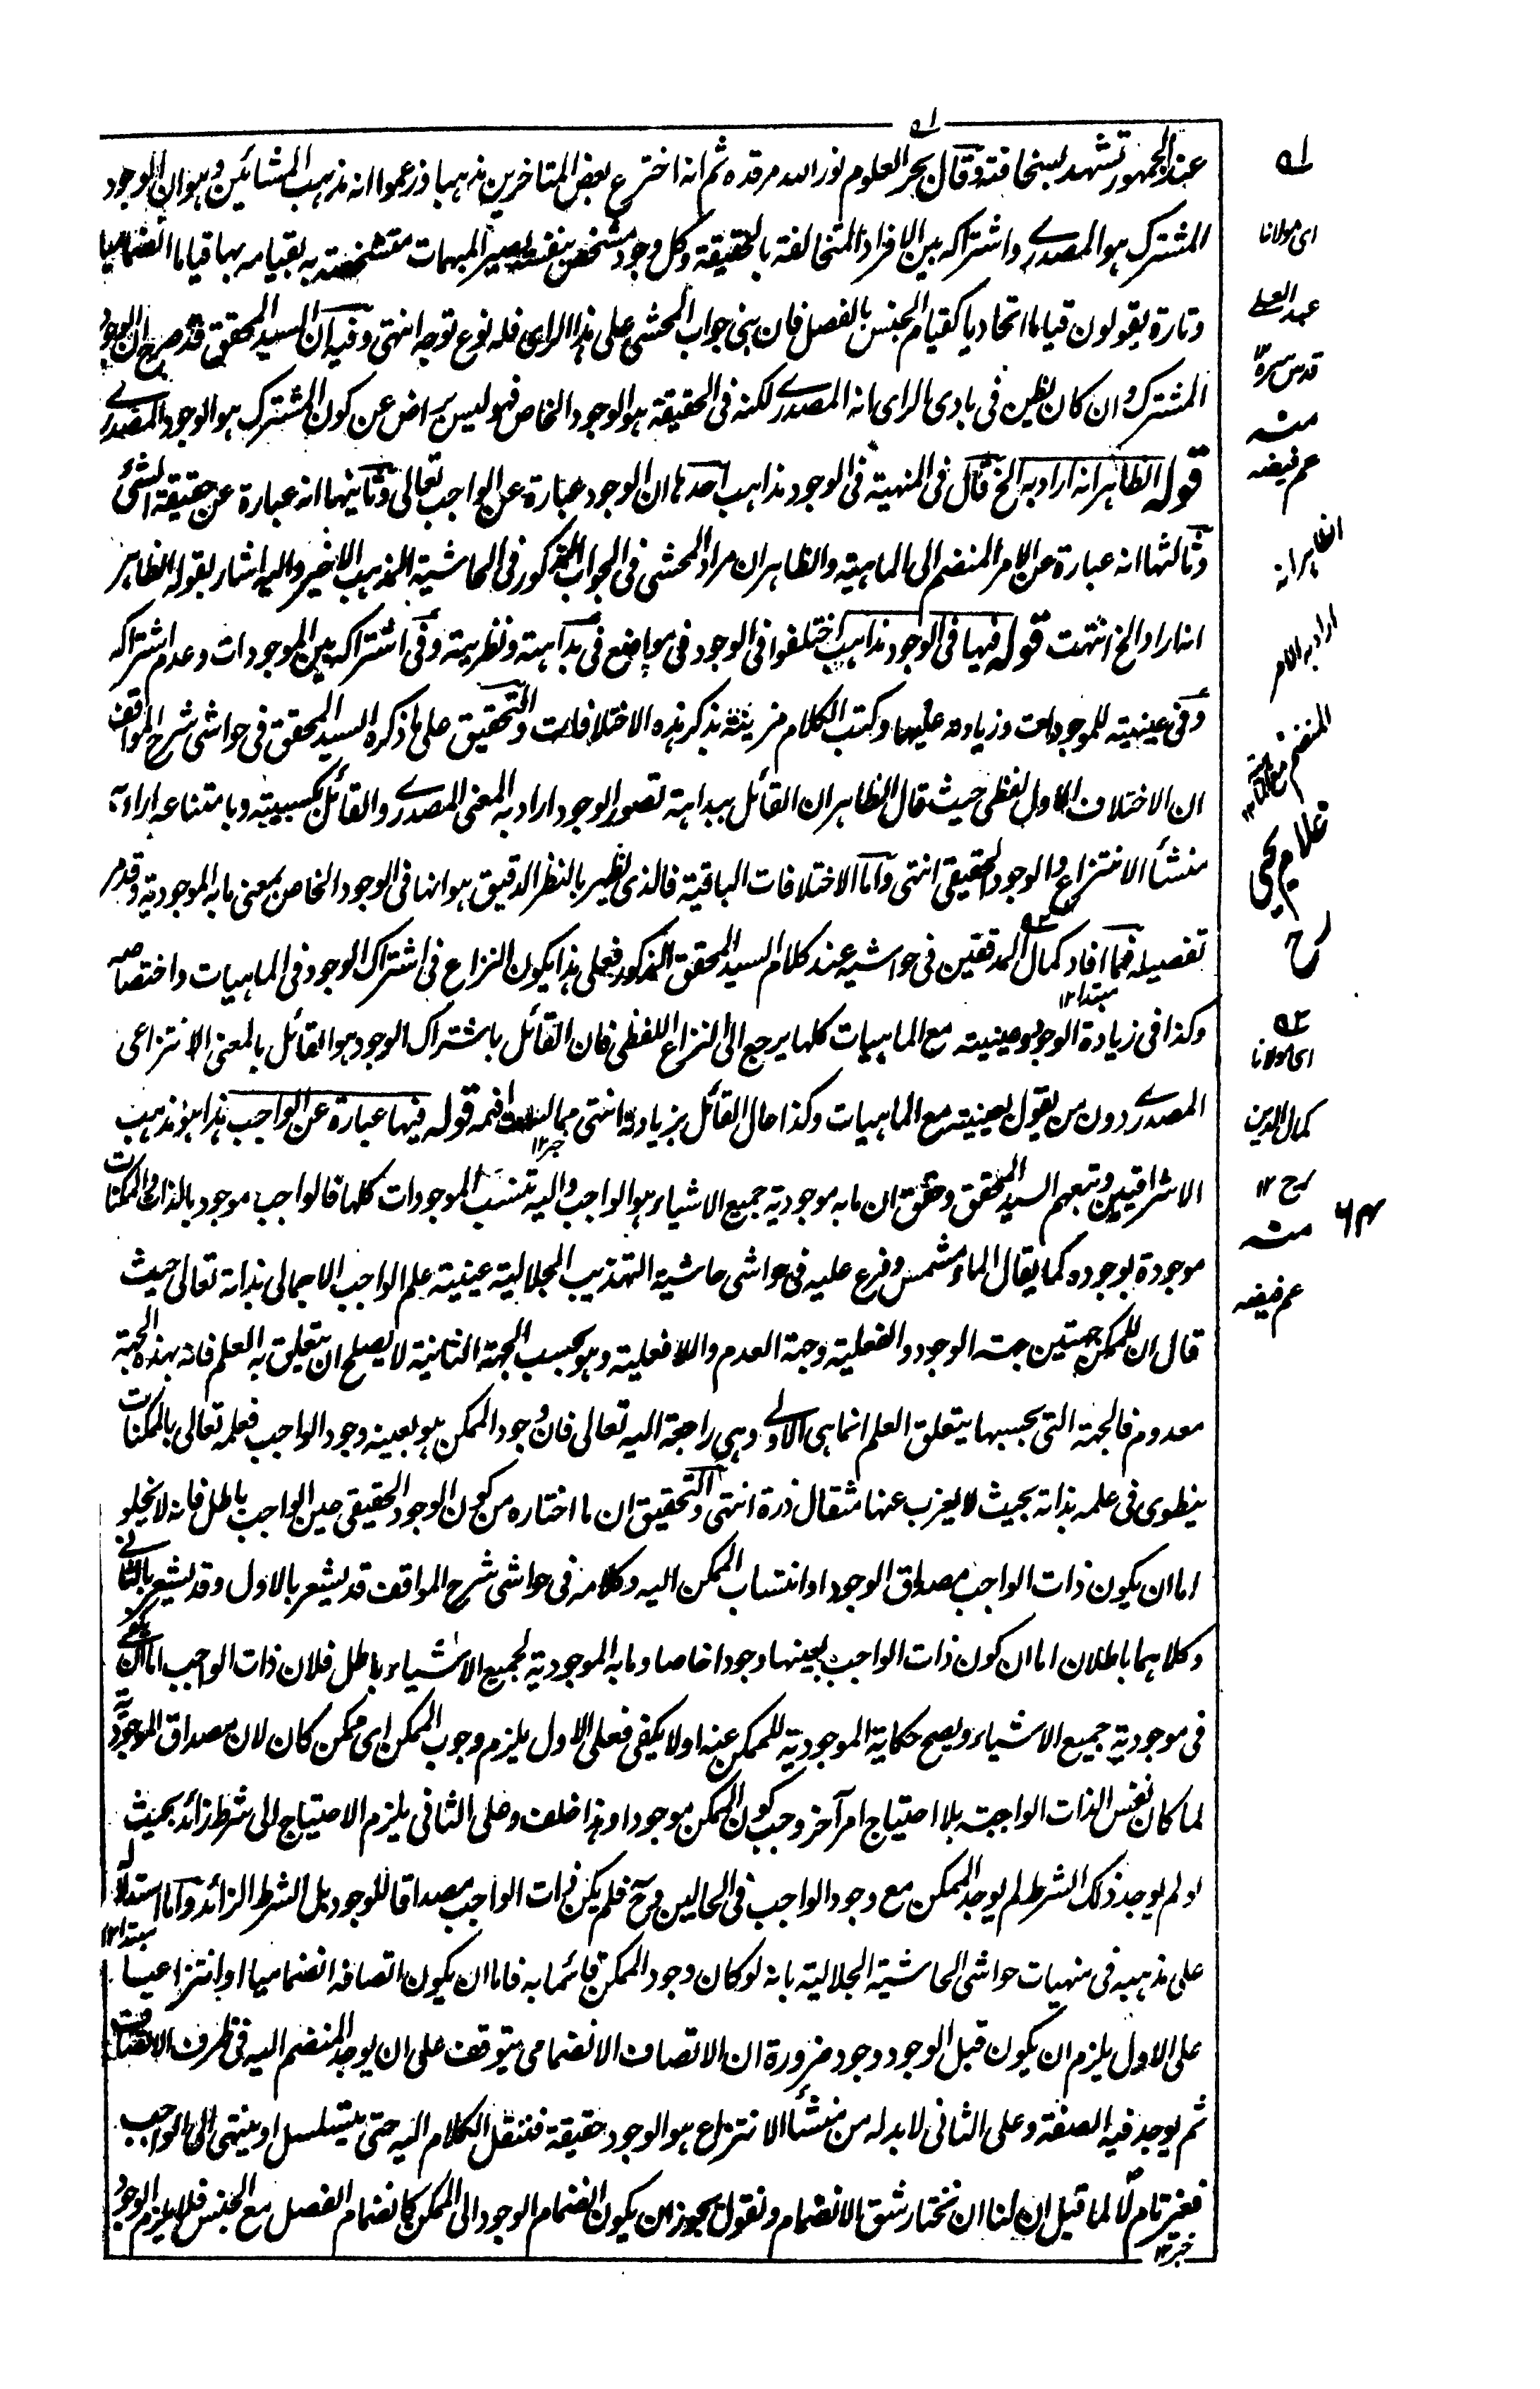 عند الجمهور تشهد بسخافته وقال بحر العلوم نور الله مرقده ثم انه اخترع بعض المتاخرين مذهبا وزعموا انه مذهب المشائين وهو ان الوجود
المشترك هو المصدرى واشتراكه بين الافراد المتخالفة بالحقيقة وكل وجود متشخص بنفسه يصير المبهمات متشخصة به بقيامه بها قياما انضماميا
وتارة يقولون قياما اتحاديا كقيام الجنس بالفصل فان بنى جواب المحشى على هذا الراى فله نوع توجه انتهى وفيه ان السيد المحقق قد صرح ان الوجود
المشترك وان كان يظن فى بادى الراى انه المصدرى لكنه فى الحقيقة هو الوجود الخاص فهو ليس براض عن كون المشترك هو الوجود المصدرى
قوله الظاهر انه اراد به الخ قال فى المنهية فى الوجود مذاهب احدها ان الوجود عبارة عن الواجب تعالى وثانيها انه عبارة عن حقيقة الشئ
وثالثها انه عبارة عن الامر المنضم الى الماهية والظاهر ان مراد المحشى فى الجواب المذكور فى الحاشية المذهب الاخير واليه اشار بقوله الظاهر
انه اراد الخ انتهت قوله فيها فى الوجود مذاهب اختلفوا فى الوجود فى مواضع فى بداهته ونظريته وفى اشتراكه بين الموجودات وعدم اشتراكه
وفى عينيته للموجودات وزيادته عليها وكتب الكلام مزينة بذكر هذه الاختلافات والتحقيق على ما ذكره السيد المحقق فى حواشى شرح المواقف
ان الاختلاف الاول لفظى حيث قال الظاهر ان القائل ببداهة تصور الوجود اراد به المعنى المصدرى والقائل بكسبيته وبامتناعه اراد به
منشأ الانتزاع والوجود الحقيقى انتهى واما الاختلافات الباقية فالذى يظهر بالنظر الدقيق هو انها فى الوجود الخاص بمعنى ما به الموجودية وقد مر
تفصيله فما افاد كمال المدققين فى حواشيه عند كلام السيد المحقق المذكور فعلى هذا يكون النزاع فى اشتراك الوجود فى الماهيات واختصاصه
مبتدا ١٢
وكذا فى زيادة الوجود وعينيته مع الماهيات كلها يرجع الى النزاع اللفظى فان القائل باشتراك الوجود هو القائل بالمعنى الانتزاعى
المصدرى دون من يقول بعينيته مع الماهيات وكذا حال القائل بزيادته انتهى مما لست افهمه قوله فيها عبارة عن الواجب هذا هو مذهب
خبر ١٢
الاشراقيين وتبعهم السيد المحقق وحقق ان ما به موجودية جميع الاشياء هو الواجب واليه تنتسب الموجودات كلها فالواجب موجود بالذات والممكنات
موجودة بوجوده كما يقال الماء مشمس وفرع عليه فى حواشى حاشية التهذيب الجلالية عينية علم الواجب الاجمالى بذاته تعالى حيث
قال ان للممكن جهتين جهة الوجود والفعلية وجهة العدم واللافعلية وهو بحسب الجهة الثانية لا يصلح ان يتعلق به العلم فانه بهذه الجهة
معدوم فالجهة التى بحسبها يتعلق العلم انما هى الاولى وهى راجعة اليه تعالى فان وجود الممكن هو بعينه وجود الواجب فعلمه تعالى بالممكنات
ينطوى فى علمه بذاته بحيث لا يعزب عنها مثقال ذرة انتهى والتحقيق ان ما اختاره من كون الوجود الحقيقى عين الواجب باطل فانه لا يخلو
اما ان يكون ذات الواجب مصداق الوجود او انتساب الممكن اليه وكلامه فى حواشى شرح المواقف قد يشعر بالاول وقد يشعر بالثانى
وكلاهما باطلان اما ان كون ذات الواجب بعينها وجودا خاصا وما به الموجودية لجميع الاشياء باطل فلان ذات الواجب اما ان يكفى
فى موجودية جميع الاشياء ويصح حكاية الموجودية للممكن عنه او لا يكفى فعلى الاول يلزم وجوب الممكن اى ممكن كان لان مصداق الموجودية
لما كان نفس الذات الواجبة بلا احتياج امر آخر وجب كون الممكن موجودا وهذا خلف وعلى الثانى يلزم الاحتياج الى شرط زائد بحيث
لو لم يوجد ذلك الشرط لم يوجد الممكن مع وجود الواجب فى الحالين وح فلم يكن ذات الواجب مصداقا للوجود بل الشرط الزائد واما استدلاله
مبتدا ١٢
على مذهبه فى منهيات حواشى الحاشية الجلالية بانه لو كان وجود الممكن قائما به فاما ان يكون اتصافه انضماميا او انتزاعيا
على الاول يلزم ان يكون قبل الوجود وجود ضرورة ان الاتصاف الانضمامى يتوقف على ان يوجد المنضم اليه فى ظرف الاتصاف
ثم يوجد فيه الصفة وعلى الثانى لا بد له من منشأ الانتزاع هو الوجود حقيقة فننقل الكلام اليه حتى يتسلسل او ينتهى الى الواجب
فغير تام لا لما قيل ان لنا ان نختار شق الانضمام ونقول يجوز ان يكون انضمام الوجود الى الممكن كانضمام الفصل مع الجنس فلا يلزم الوجود
خبر ١٢
ا٥
اى مولانا
عبد العلى
قدس سره
منه
عم فيضه
الظاهر انه
اراد به الامر
المنضم مع الماهية ١٢
غلام يحيى
رح
٥٢
اى مولانا
كمال الدين
رح ١٢
منه
عم فيضه
٦٤